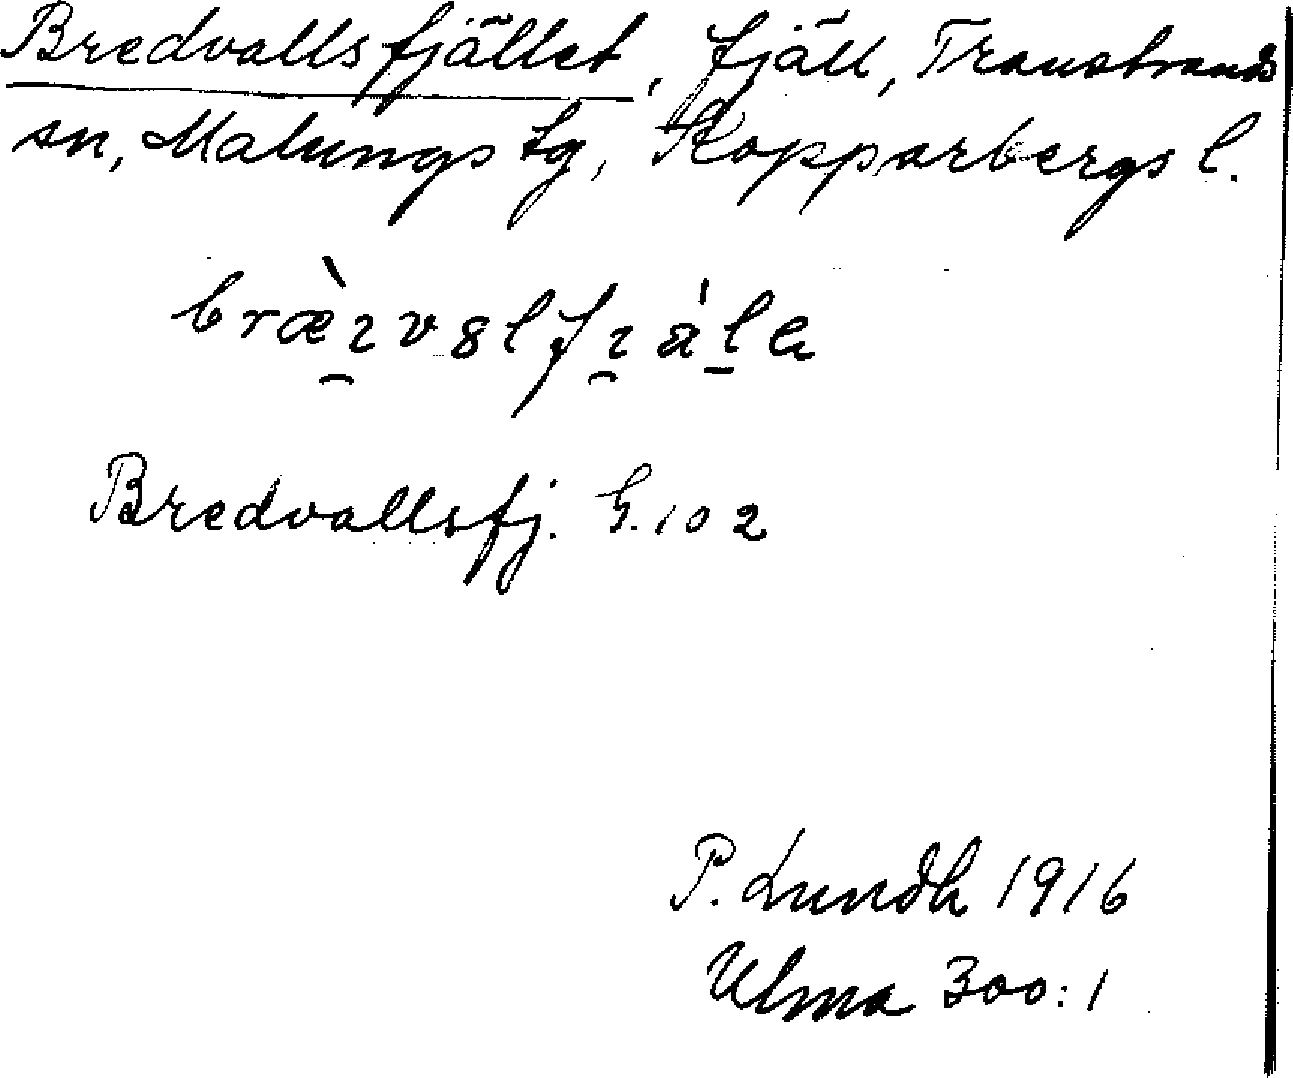 Bredvallsfjället, fjäll, Transtrands
sn, Malungs tg, Kopparbergs l.
Bredvallsfj. G.102
P. Lundh 1916
Ulma 300:1